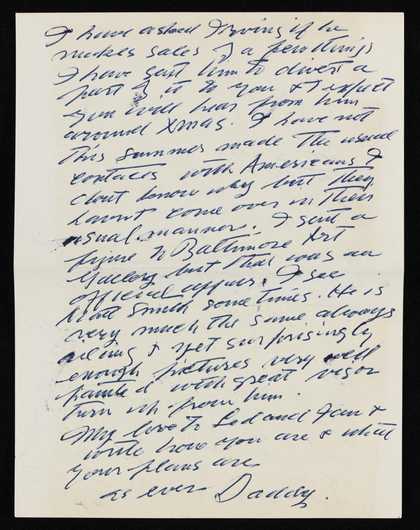 I have asked Irving if he
makes sales of a few things
I have sent him to divert a
part of it to you & I expect
you will hear from him
around Xmas. I have not
this summer made the usual
contacts with Americans &
dont know why but they
havent come over in their
usual manner. I sent a
figure to Baltimore Art
Gallery but that was an
official affair. I see
Matt Smith some times. He is
very much the same always
ailing & yet surprisingly
enough pictures very well
painted with great vigor
turn up from him.
My love to and &
write how you are & what
your plans are
as ever Daddy.